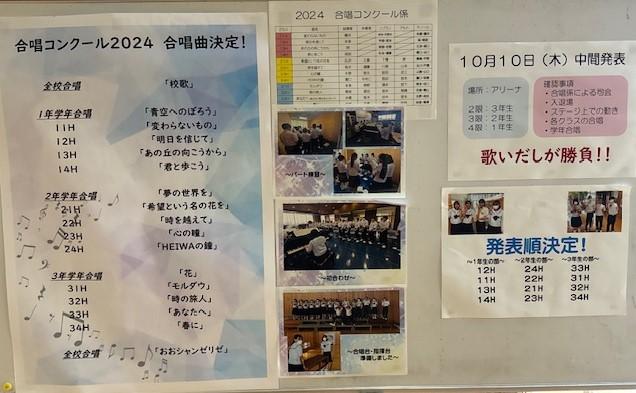 合唱コンクール2024 合唱曲決定!
全校合唱 「校歌」
1年学年合唱 「青空へのぼろう」
11H 「変わらないもの」
12H 「明日を信じて」
13H 「あの丘の向こうから」
14H 「君と歩こう」
2年学年合唱 「夢の世界を」
21H 「希望という名の花を」
22H 「時を越えて」
23H 「心の瞳」
24H 「HEIWAの鐘」
3年学年合唱 「花」
31H 「モルダウ」
32H 「時の旅人」
33H 「あなたへ」
34H 「春に」
全校合唱 「おおシャンゼリゼ」
2024 合唱コンクール係
～パート練習～
～初合わせ～
～合唱台・指揮台
準備しました～
10月10日(木)中間発表
場所:アリーナ
2限:3年生
3限:2年生
4限:1年生
確認事項
・合唱係による司会
・入退場
・ステージ上での動き
・各クラスの合唱
・学年合唱
歌いだしが勝負!!
発表順決定!
～1年生の部～ ～2年生の部～ ～3年生の部～
12H 24H 33H
11H 22H 31H
13H 21H 32H
14H 23H 34H